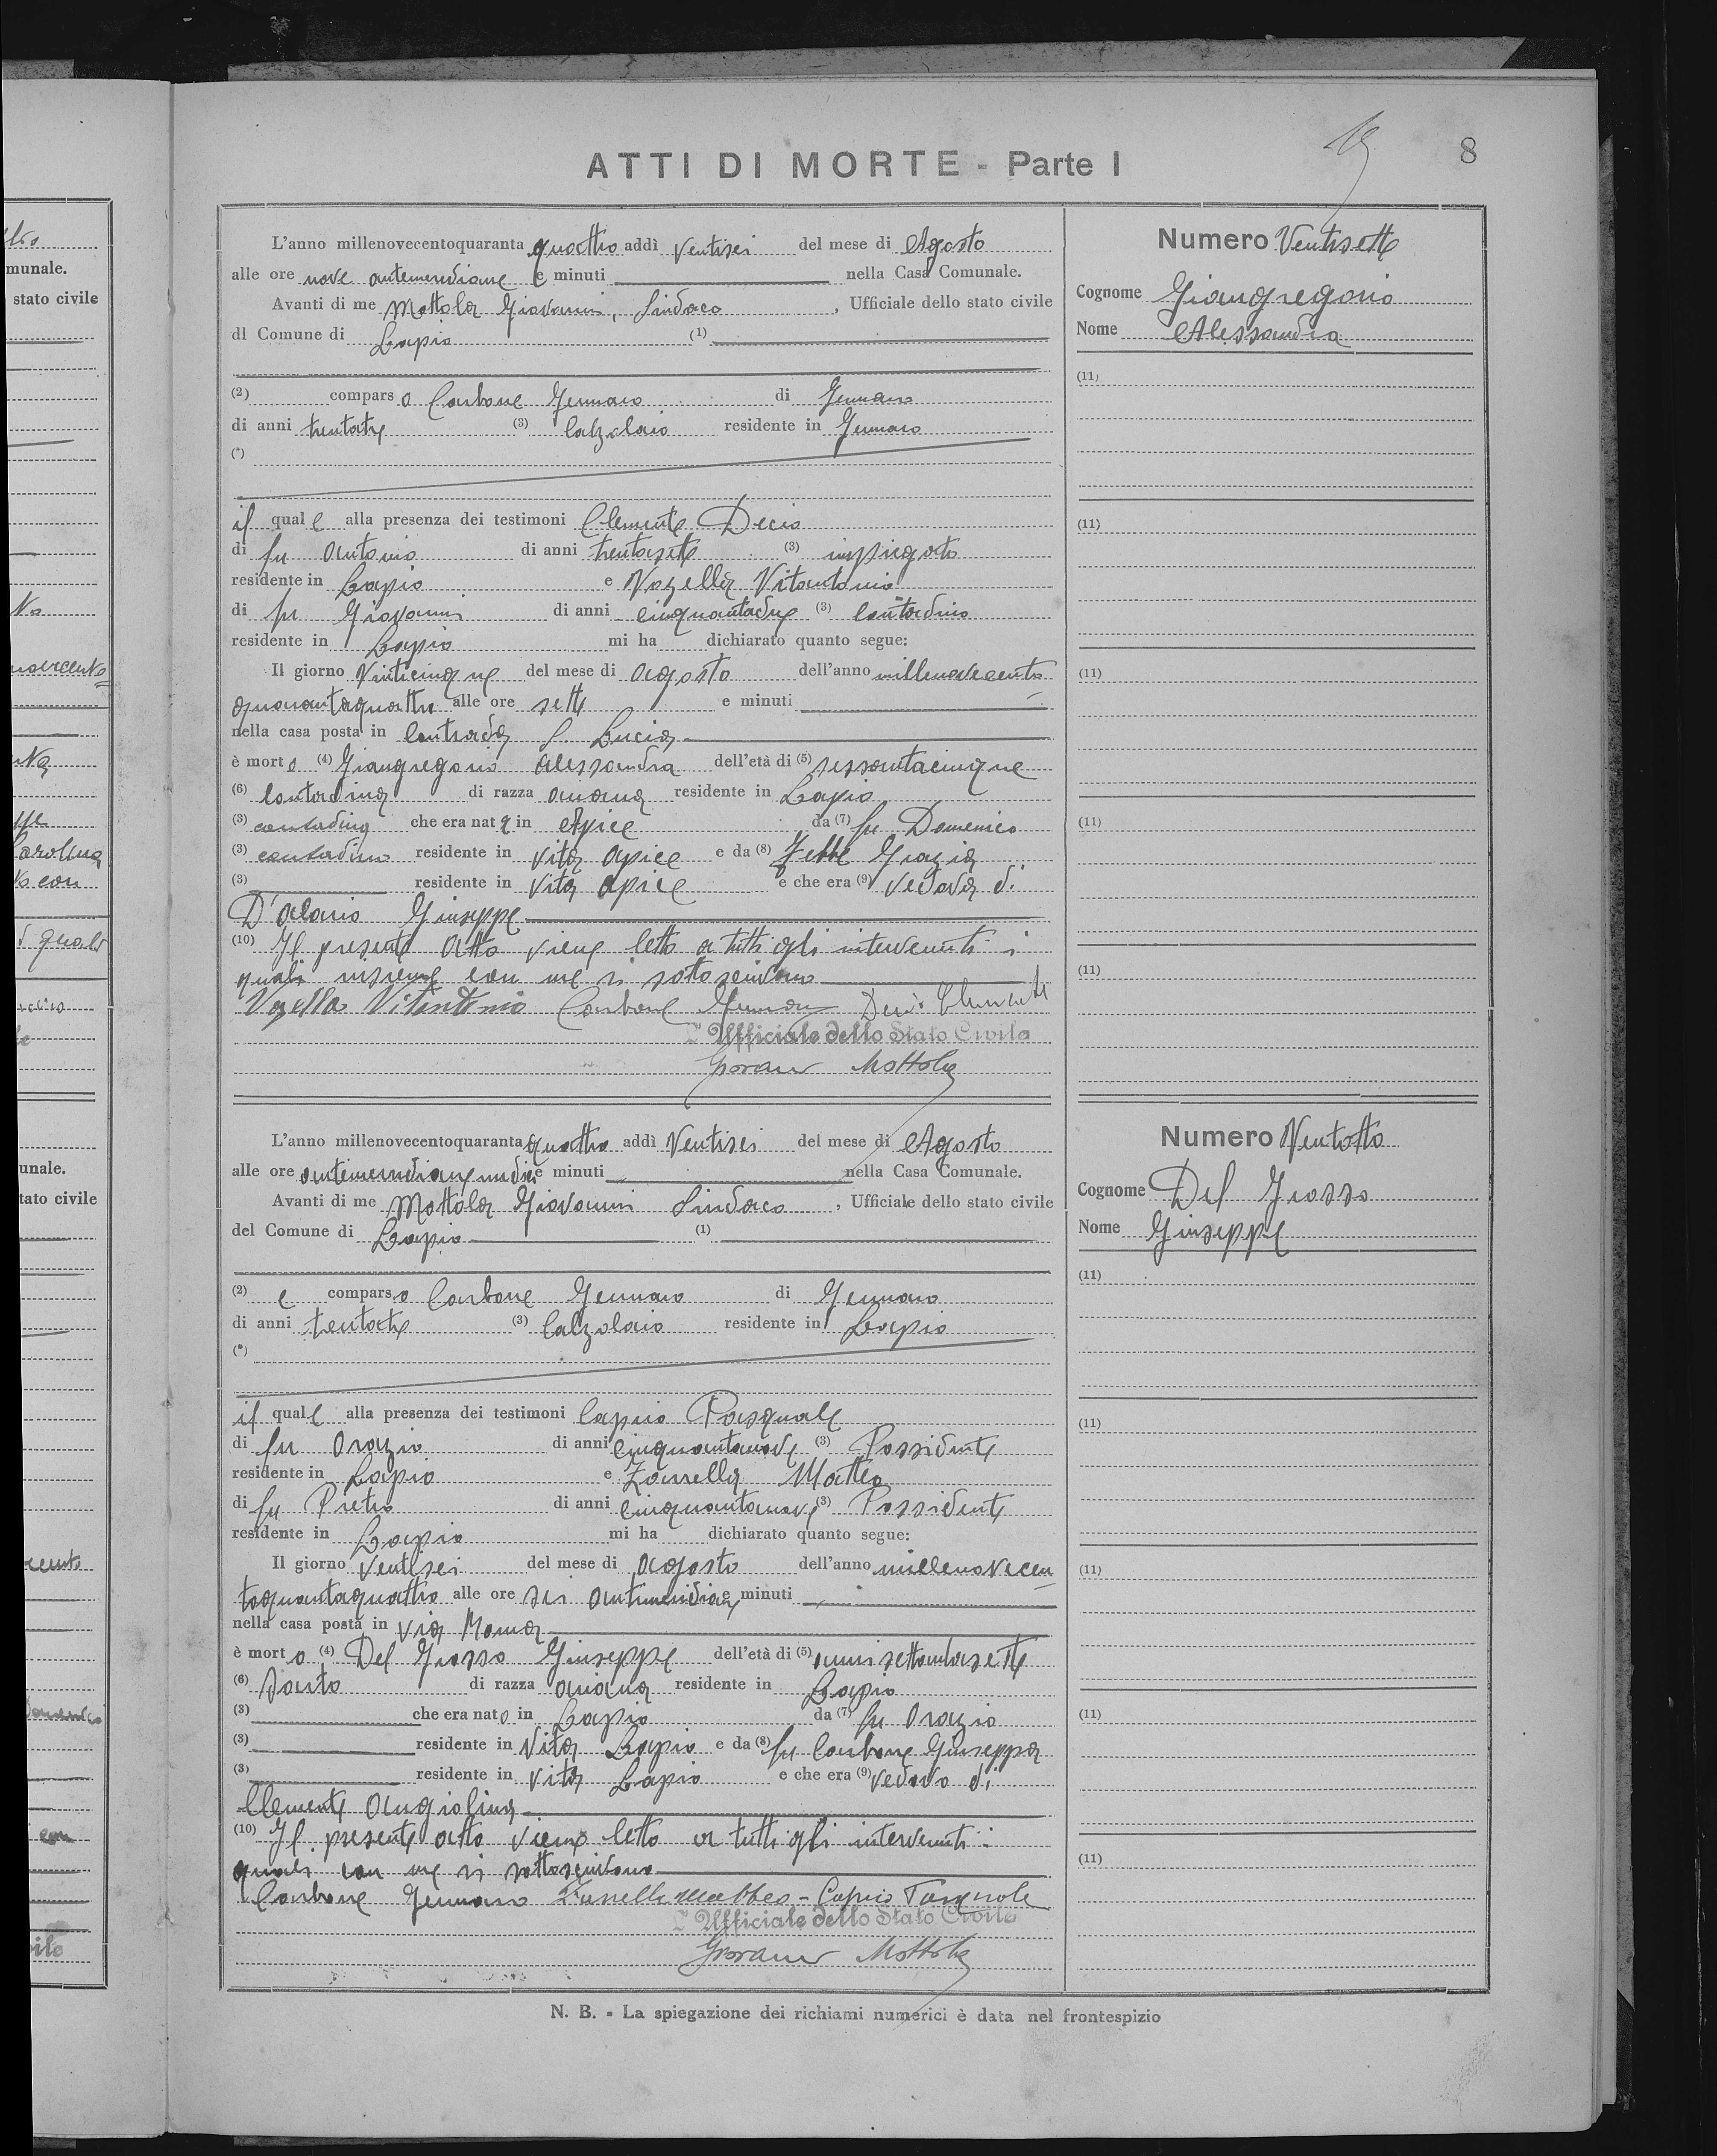 19
8
ATTI DI MORTE - Parte I
L'anno millenovecentoquaranta quattro addì ventisei del mese di Agosto
alle ore nove antemeridiane e minuti nella Casa Comunale.
Avanti di me Mottola Giovanni, Sindaco, Ufficiale dello stato civile
dl Comune di Lapio (1)
(2) comparso Carbone Gennaro di Gennaro
di anni trentatre (3) Calzolaio residente in Gennaro
(*)
il quale alla presenza dei testimoni Clemente Decio
di fu Antonio di anni trentasette (3) impiegato
residente in Lapio e Vozella Vitantonio
di fu Giovanni di anni cinquantadue (3) contadino
residente in Lapio mi ha dichiarato quanto segue:
Il giorno Venticinque del mese di Agosto dell'anno millenovecento
quarantaquattro alle ore sette e minuti
nella casa posta in contrada S. Lucia
è morto (4) Giangregorio Alessandra dell'età di (5) sessantacinque
(6) contadina di razza ariana residente in Lapio
(3) contadina che era nata in Apice da (7) fu Domenico
(3) contadino residente in vita Apice e da (8) Zebbe Grazia
(3) residente in vita Apice e che era (9) vedova di
D'Alario Giuseppe
(10) Il presente atto viene letto a tutti gli intervenuti i
quali insieme con me si sottoscrivono
Vozella Vitantonio Carbone Gennaro Decio Clemente
L'Ufficiale dello Stato Civile
Giovanni Mottola
Numero Ventisette
Cognome Giangregorio
Nome Alessandra
(11)
(11)
(11)
(11)
(11)
L'anno millenovecentoquaranta quattro addì Ventisei del mese di Agosto
alle ore antimeridiane undici e minuti nella Casa Comunale.
Avanti di me Mottola Giovanni Sindaco, Ufficiale dello stato civile
del Comune di Lapio (1)
(2) e comparso Carbone Gennaro di Gennaro
di anni trentatre (3) Calzolaio residente in Lapio
(*)
il quale alla presenza dei testimoni Caprio Pasquale
di fu Orazio di anni cinquantanove (3) Possidente
residente in Lapio e Zarrella Matteo
di fu Pietro di anni cinquantanove (3) Possidente
residente in Lapio mi ha dichiarato quanto segue:
Il giorno Ventisei del mese di Agosto dell'anno millenovecen
toquarantaquattro alle ore sei antimeridiane minuti
nella casa posta in Via Roma
è morto (4) Del Grosso Giuseppe dell'età di (5) anni settantasette
(6) Sarto di razza ariana residente in Lapio
(3) che era nato in Lapio da (7) fu Orazio
(3) residente in vita Lapio e da (8) fu Carbone Giuseppa
(3) residente in vita Lapio e che era (9) vedovo di
Clemente Angiolina
(10) Il presente atto viene letto a tutti gli intervenuti i
quali con me si sottoscrivono
Carbone Gennaro Zarrella Matteo - Caprio Pasquale
L'Ufficiale dello Stato Civile
Giovanni Mottola
Numero Ventotto
Cognome Del Grosso
Nome Giuseppe
(11)
(11)
(11)
(11)
(11)
N. B. - La spiegazione dei richiami numerici è data nel frontespizio